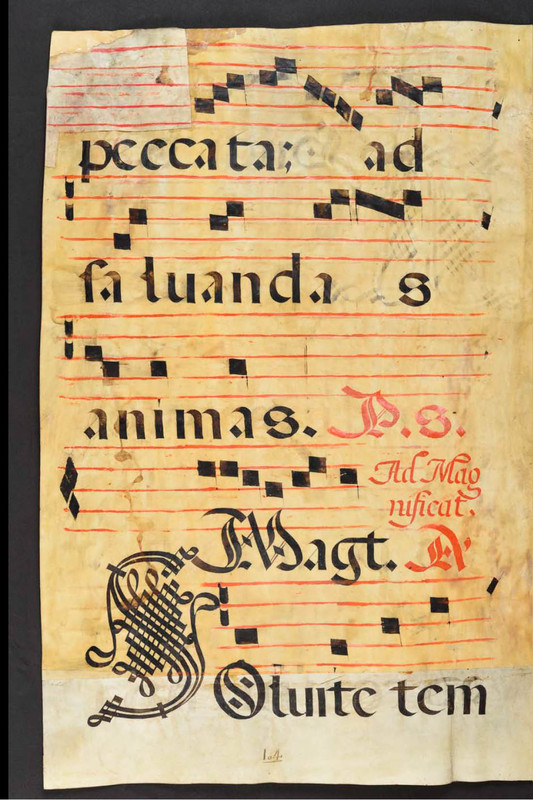 peccata; ad
saluanda s
animas. P.s.
Ad Mag
nificat.
Magt. A
Soluite tem